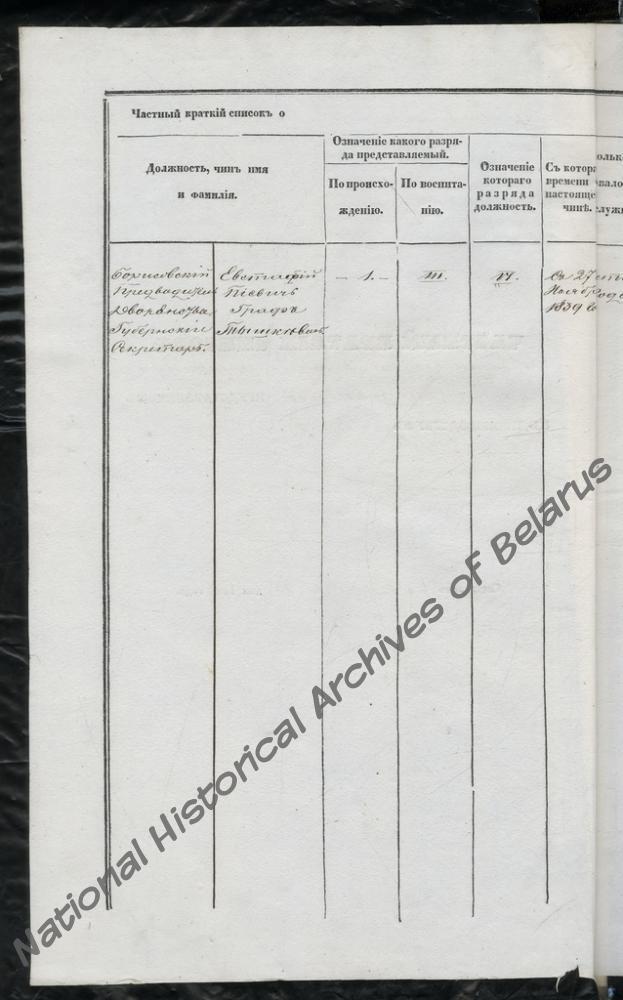 Частный краткій списокъ о
Должность, чинъ имя
и фамилія.
Означеніе какого разря-
да представляемый.
По происхо-
жденію.
По воспита-
нію.
Означеніе
котораго
разряда
должность.
Съ котора
времени
настояще
чинѣ.
Борисовскій
Предводитель
Дворянства,
Губернскій
Секретарь.
Евстафій
Піевичъ
Графъ
Тышкевичъ
1.
III.
IV.
Съ 27
Ноября
1839 г
National Historical Archives of Belarus